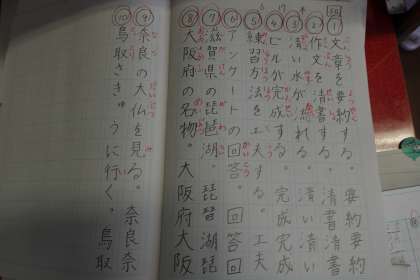 ① 文章を要約する。 要約 要約
② 作文を清書する。 清書 清書
③ 清い水が流れる。 清い 清い
④ ビルが完成する。 完成 完成
⑤ 練習方法を工夫する。 工夫
⑥ アンケートの回答。 回答 回答
⑦ 滋賀県の琵琶湖。 琵琶湖 琵琶湖
⑧ 大阪府の名物。 大阪府 大阪
⑨ 奈良の大仏を見る。 奈良 奈良
⑩ 鳥取さきゅうに行く。 鳥取